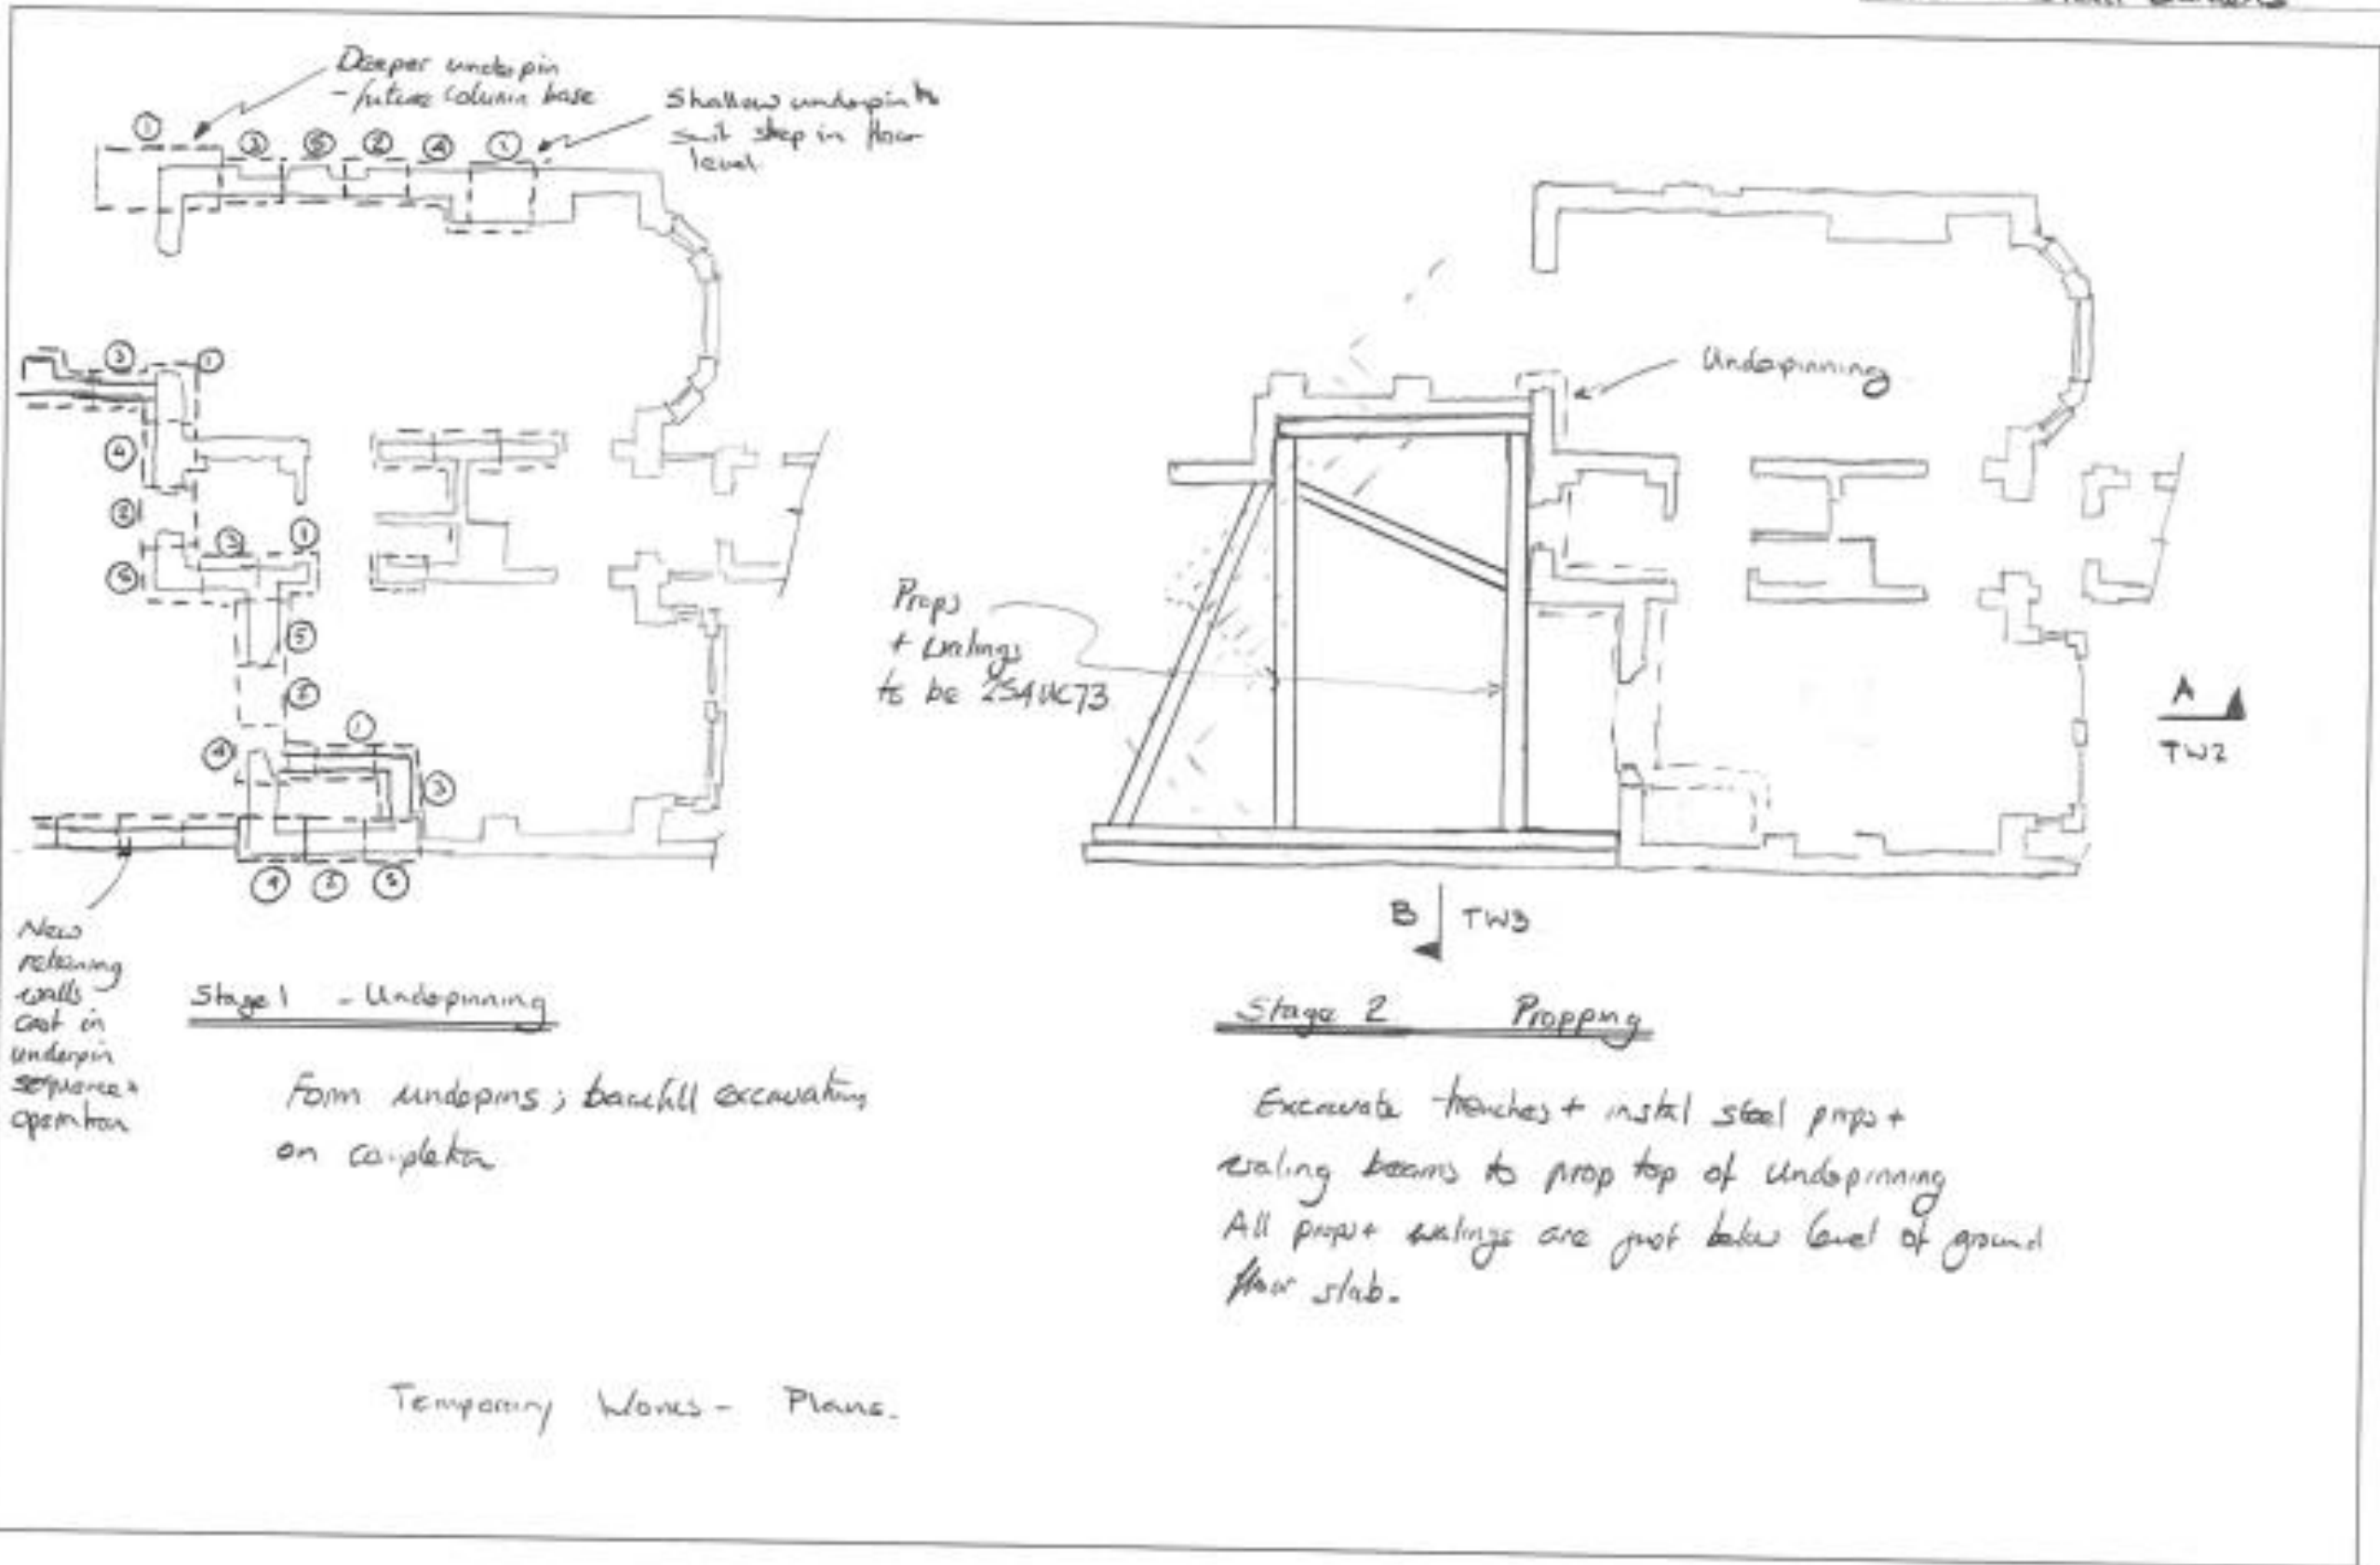 Deeper underpin
- future column base
Shallow underpin to
suit step in floor
level
①
③ ⑤ ② ④ ①
③ ①
④
②
③ ①
⑤
⑤
②
①
④
③
④ ② ⑤
New
retaining
walls
cast in
underpin
sequence +
operation
Stage 1 - Underpinning
Form underpins; backfill excavations
on completion
Underpinning
Props
+ walings
to be 254UC73
A
TW2
B TW3
Stage 2 Propping
Excavate trenches + instal steel props +
waling beams to prop top of underpinning
All props + walings are just below level of ground
floor slab.
Temporary Works - Plans.